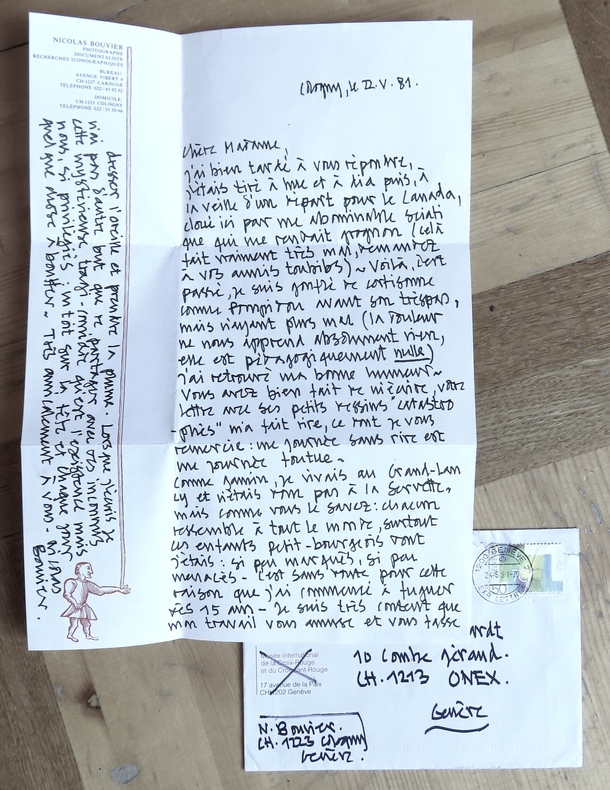 NICOLAS BOUVIER
PHOTOGRAPHE
DOCUMENTALISTE
RECHERCHES ICONOGRAPHIQUES
BUREAU:
AVENUE VIBERT 9
CH-1227 CAROUGE
DOMICILE:
CH-1223 COLOGNY
Cologny, le 22.V.81.
Chère Madame,
j'ai bien tardé à vous répondre,
j'étais tiré à hue et à dia puis, à
la veille d'un départ pour le Canada,
cloué ici par une abominable sciati
que qui me rendait grognon (celà
fait vraiment très mal, demandez
à vos amis toubibs) ~ Voilà, c'est
passé, je suis gonflé de cortisone
comme Pompidou avant son trépas,
mais n'ayant plus mal (la douleur
ne nous apprend absolument rien,
elle est pédagogiquement nulle)
j'ai retrouvé ma bonne humeur ~
Vous avez bien fait de m'écrire, votre
lettre avec ses petits dessins "catastro
phés" m'a fait rire, ce dont je vous
remercie : une journée sans rire est
une journée foutue ~
Comme gamin, je vivais au Grand-Lan
cy et n'étais donc pas à la Servette,
mais comme vous le savez : chacun
ressemble à tout le monde, surtout
les enfants petit-bourgeois dont
j'étais : si peu marqués, si peu
menacés ~ C'est sans doute pour cette
raison que j'ai commencé à fuguer
dès 15 ans ~ Je suis très content que
mon travail vous amuse et vous fasse
dresser l'oreille et prendre la plume. Lorsque j'écris, je
n'ai pas d'autre but que de partager avec des inconnus
cette mystérieuse tragi-comédie qu'est l'existence mais
nous, si privilégiés : un toit sur la tête et chaque jour
quelque chose à bouffer ~ Très amicalement à vous. Nicolas
Bouvier.
ardt
10 Combe Gérand.
CH. 1213 ONEX.
Genève
Musée international
de la Croix-Rouge
et du Croissant-Rouge
17 avenue de la Paix
CH-1202 Genève
N. Bouvier.
CH. 1223 Cologny
Genève.